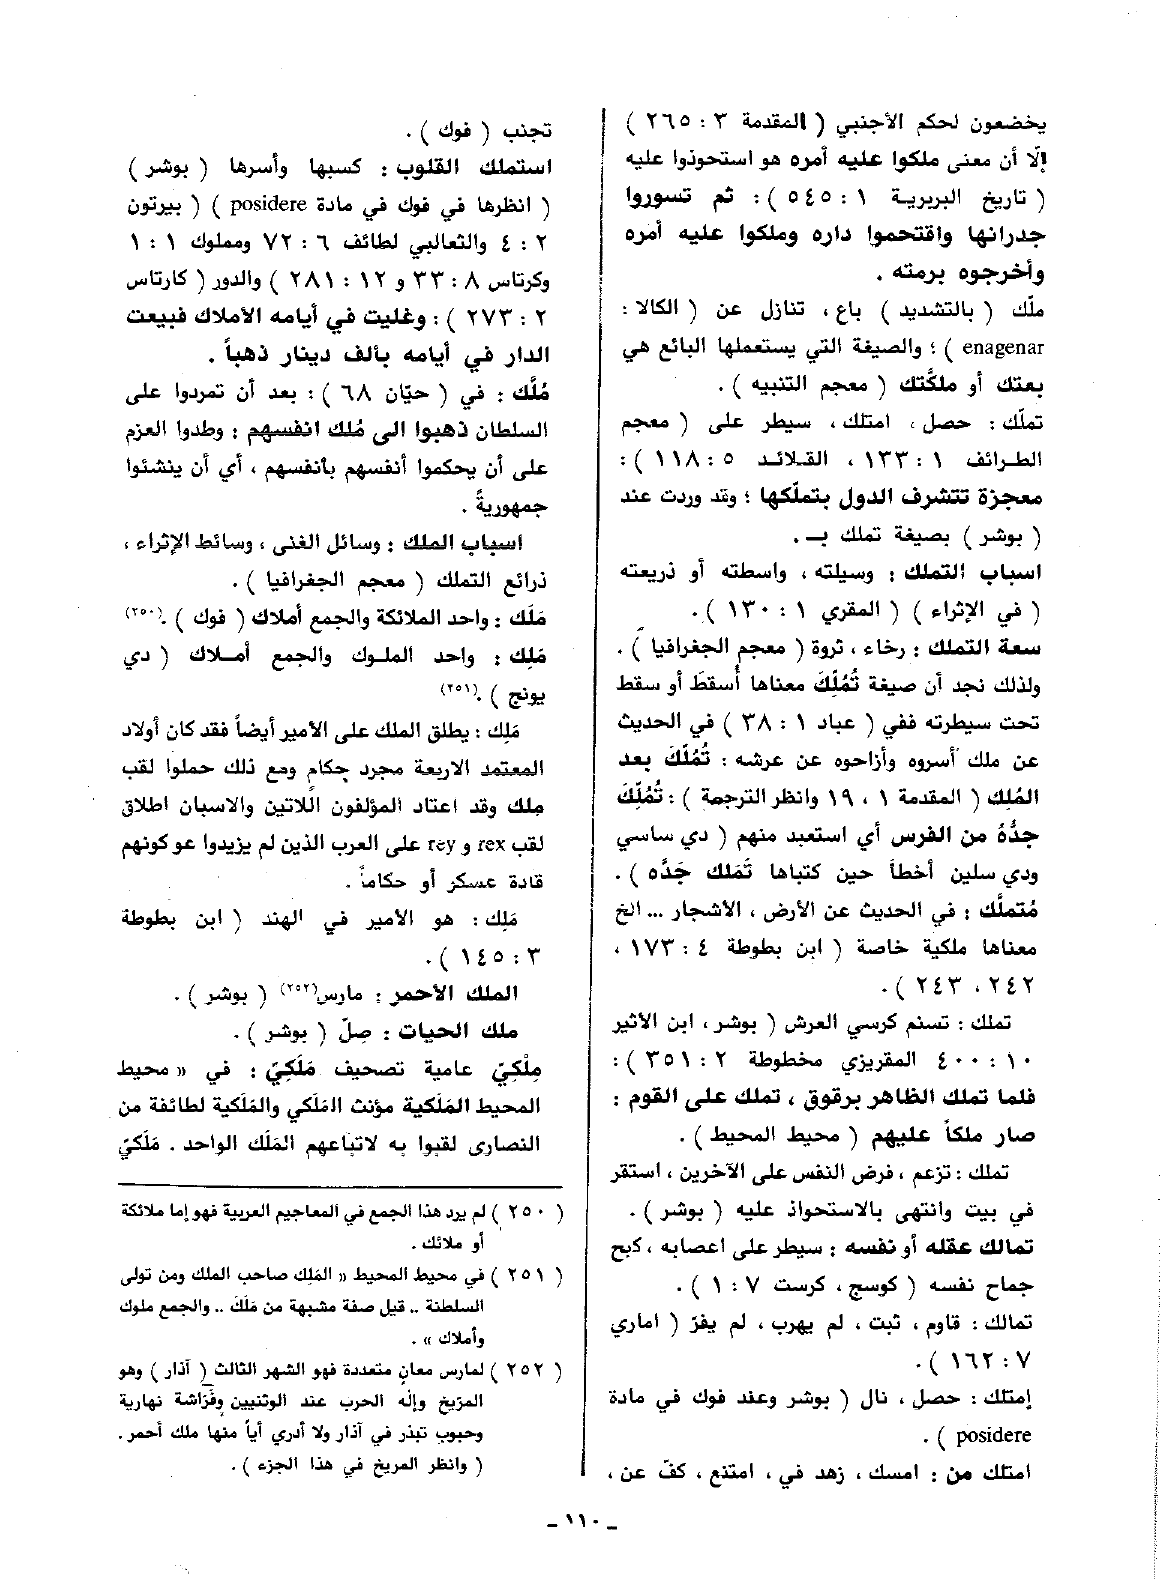 يخضعون لحكم الأجنبي ( المقدمة ٣ : ٢٦٥ )
إلّا أن معنى ملكوا عليه أمره هو استحوذوا عليه
( تاريخ البربرية ١ : ٥٤٥ ) : ثم تسوروا
جدرانها واقتحموا داره وملكوا عليه أمره
وأخرجوه برمته .
ملّك ( بالتشديد ) باع ، تنازل عن ( الكالا :
enagenar ) ؛ والصيغة التي يستعملها البائع هي
بعتك أو ملكّتك ( معجم التنبيه ) .
تملّك : حصل ، امتلك ، سيطر على ( معجم
الطرائف ١ : ١٣٣ ، القلائد ٥ : ١١٨ ) :
معجزة تتشرف الدول بتملّكها ؛ وقد وردت عند
( بوشر ) بصيغة تملك بـ .
اسباب التملك : وسيلته ، واسطته أو ذريعته
( في الإثراء ) ( المقري ١ : ١٣٠ ) .
سعة التملك : رخاء ، ثروة ( معجم الجغرافيا ) .
ولذلك نجد أن صيغة تُمُلِّكَ معناها أُسقطَ أو سقط
تحت سيطرته ففي ( عباد ١ : ٣٨ ) في الحديث
عن ملك أسروه وأزاحوه عن عرشه : تُمُلِّكَ بعد
المُلِك ( المقدمة ١ ، ١٩ وانظر الترجمة ) : تُمُلِّكَ
جدُّهُ من الفرس أي استعبد منهم ( دي ساسي
ودي سلين أخطأ حين كتباها تَمَلك جَدَّه ) .
مُتملَّك : في الحديث عن الأرض ، الأشجار ... الخ
معناها ملكية خاصة ( ابن بطوطة ٤ : ١٧٣ ،
٢٤٢ ، ٢٤٣ ) .
تملك : تسنم كرسي العرش ( بوشر ، ابن الأثير
١٠ : ٤٠٠ المقريزي مخطوطة ٢ : ٣٥١ ) :
فلما تملك الظاهر برقوق ، تملك على القوم :
صار ملكاً عليهم ( محيط المحيط ) .
تملك : تزعم ، فرض النفس على الآخرين ، استقر
في بيت وانتهى بالاستحواذ عليه ( بوشر ) .
تمالك عقله أو نفسه : سيطر على اعصابه ، كبح
جماح نفسه ( كوسج ، كرست ٧ : ١ ) .
تمالك : قاوم ، ثبت ، لم يهرب ، لم يفرّ ( اماري
٧ : ١٦٢ ) .
إمتلك : حصل ، نال ( بوشر وعند فوك في مادة
posidere ) .
امتلك من : امسك ، زهد في ، امتنع ، كفّ عن ،
تجنب ( فوك ) .
استملك القلوب : كسبها وأسرها ( بوشر )
( انظرها في فوك في مادة posidere ) ( بيرتون
٢ : ٤ والثعالبي لطائف ٦ : ٧٢ ومملوك ١ : ١
وكرتاس ٨ : ٣٣ و ١٢ : ٢٨١ ) والدور ( كارتاس
٢ : ٢٧٣ ) : وغليت في أيامه الأملاك فبيعت
الدار في أيامه بألف دينار ذهباً .
مُلَّك : في ( حيّان ٦٨ ) : بعد أن تمردوا على
السلطان ذهبوا الى مُلك انفسهم : وطدوا العزم
على أن يحكموا أنفسهم بأنفسهم ، أي أن ينشئوا
جمهوريةً .
اسباب الملك : وسائل الغنى ، وسائط الإثراء ،
ذرائع التملك ( معجم الجغرافيا ) .
مَلَك : واحد الملائكة والجمع أملاك ( فوك ) .(٢٥٠)
مَلِك : واحد الملوك والجمع أملاك ( دي
يونج ) .(٢٥١)
مَلِك : يطلق الملك على الأمير أيضاً فقد كان أولاد
المعتمد الاربعة مجرد حكام ومع ذلك حملوا لقب
ملك وقد اعتاد المؤلفون اللّاتين والاسبان اطلاق
لقب rex و rey على العرب الذين لم يزيدوا عو كونهم
قادة عسكر أو حكاماً .
مَلِك : هو الأمير في الهند ( ابن بطوطة
٣ : ١٤٥ ) .
الملك الأحمر : مارس(٢٥٢) ( بوشر ) .
ملك الحيات : صِلّ ( بوشر ) .
مِلْكِيّ عامية تصحيف مَلَكِيّ : في « محيط
المحيط المَلَكية مؤنث المَلَكي والمَلَكية لطائفة من
النصارى لقبوا به لاتباعهم المَلَك الواحد . مَلَكيّ
( ٢٥٠ ) لم يرد هذا الجمع في المعاجيم العربية فهو إما ملائكة
أو ملائك .
( ٢٥١ ) في محيط المحيط « المَلِك صاحب الملك ومن تولى
السلطنة .. قيل صفة مشبهة من مَلَكَ .. والجمع ملوك
وأملاك » .
( ٢٥٢ ) لمارس معانٍ متعددة فهو الشهر الثالث ( آذار ) وهو
المرّيخ وإلَه الحرب عند الوثنيين وفَرَاشة نهارية
وحبوب تبذر في آذار ولا أدري أياً منها ملك أحمر .
( وانظر المريخ في هذا الجزء ) .
ـ ١١٠ ـ